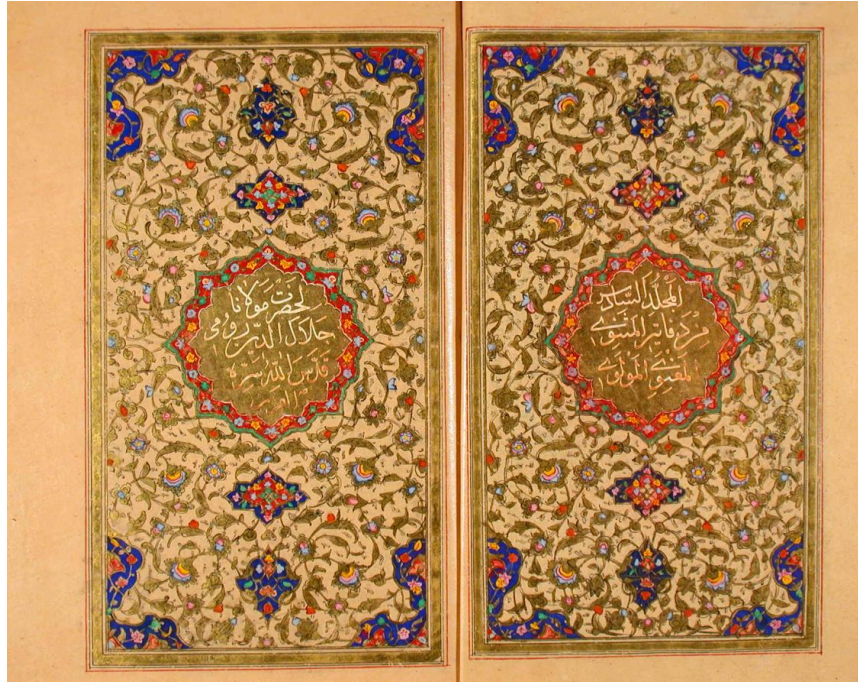 المجلد السادس
من دفاتر المثنوي
المعنوي المولوي
لحضرت مولانا
جلال الدين رومي
قدس الله سره